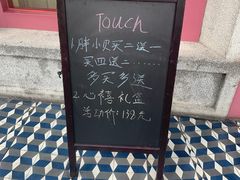 Touch
1.胖小贝买二送一
买四送二……
多买多送
2.心禧礼盒
活动价:138元